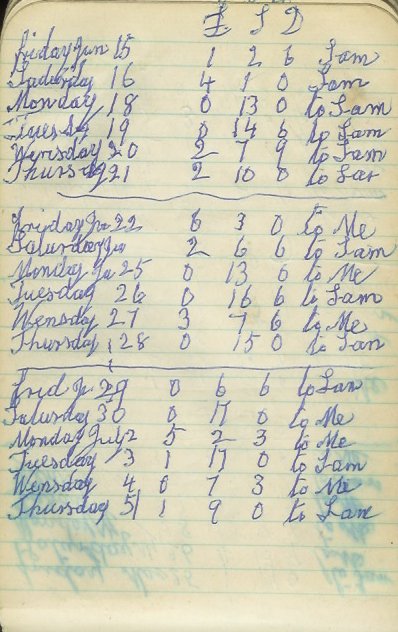 £ S D
Friday Jun 15 1 2 6 Sam
Saturday 16 4 1 0 Sam
Monday 18 0 13 0 to Sam
Tuesday 19 0 14 6 to Sam
Wensday 20 2 7 9 to Sam
Thursday 21 2 10 0 to Sar
Friday Ju 22 6 3 0 to Me
Saturday Ju 2 6 6 to Sam
Monday Ju 25 0 13 0 to Me
Tuesday 26 0 16 6 to Sam
Wensday 27 3 7 6 to Me
Thursday 28 0 15 0 to Sam
Frid Ju 29 0 6 6 to Sam
Saturday 30 0 17 0 to Me
Monday July 2 5 2 3 to Me
Tuesday 3 1 17 0 to Sam
Wensday 4 0 7 3 to Me
Thursday 5 1 9 0 to Sam